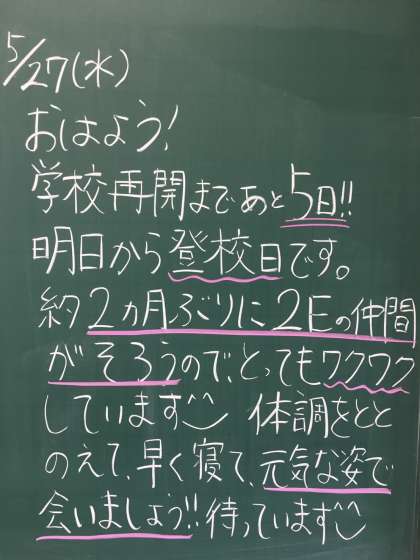 5/27(水)
おはよう!
学校再開まであと5日!!
明日から登校日です。
約2ヵ月ぶりに2Eの仲間
がそろうので、とってもワクワク
しています^^ 体調をとと
のえて、早く寝て、元気な姿で
会いましょう!!待っています^^